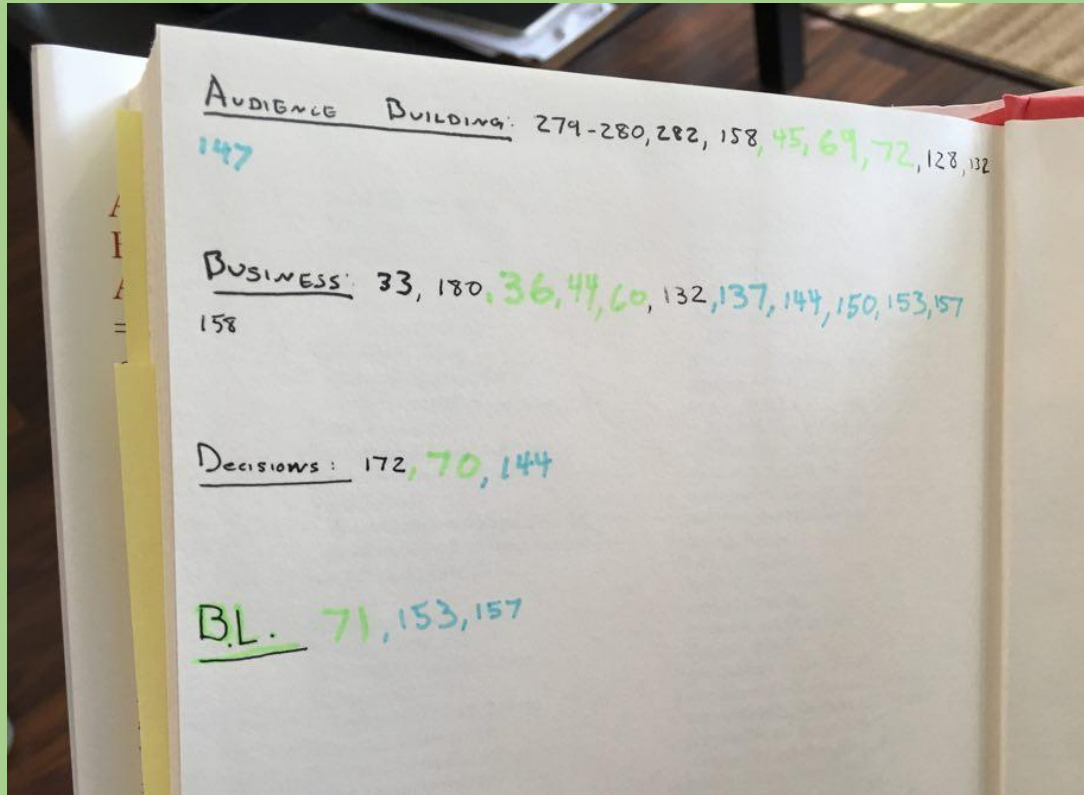 AUDIENCE BUILDING: 279-280, 282, 158, 45, 69, 72, 128, 132
147
BUSINESS: 33, 180, 36, 44, 60, 132, 137, 144, 150, 153, 157
158
DECISIONS: 172, 70, 144
B.L. 71, 153, 157